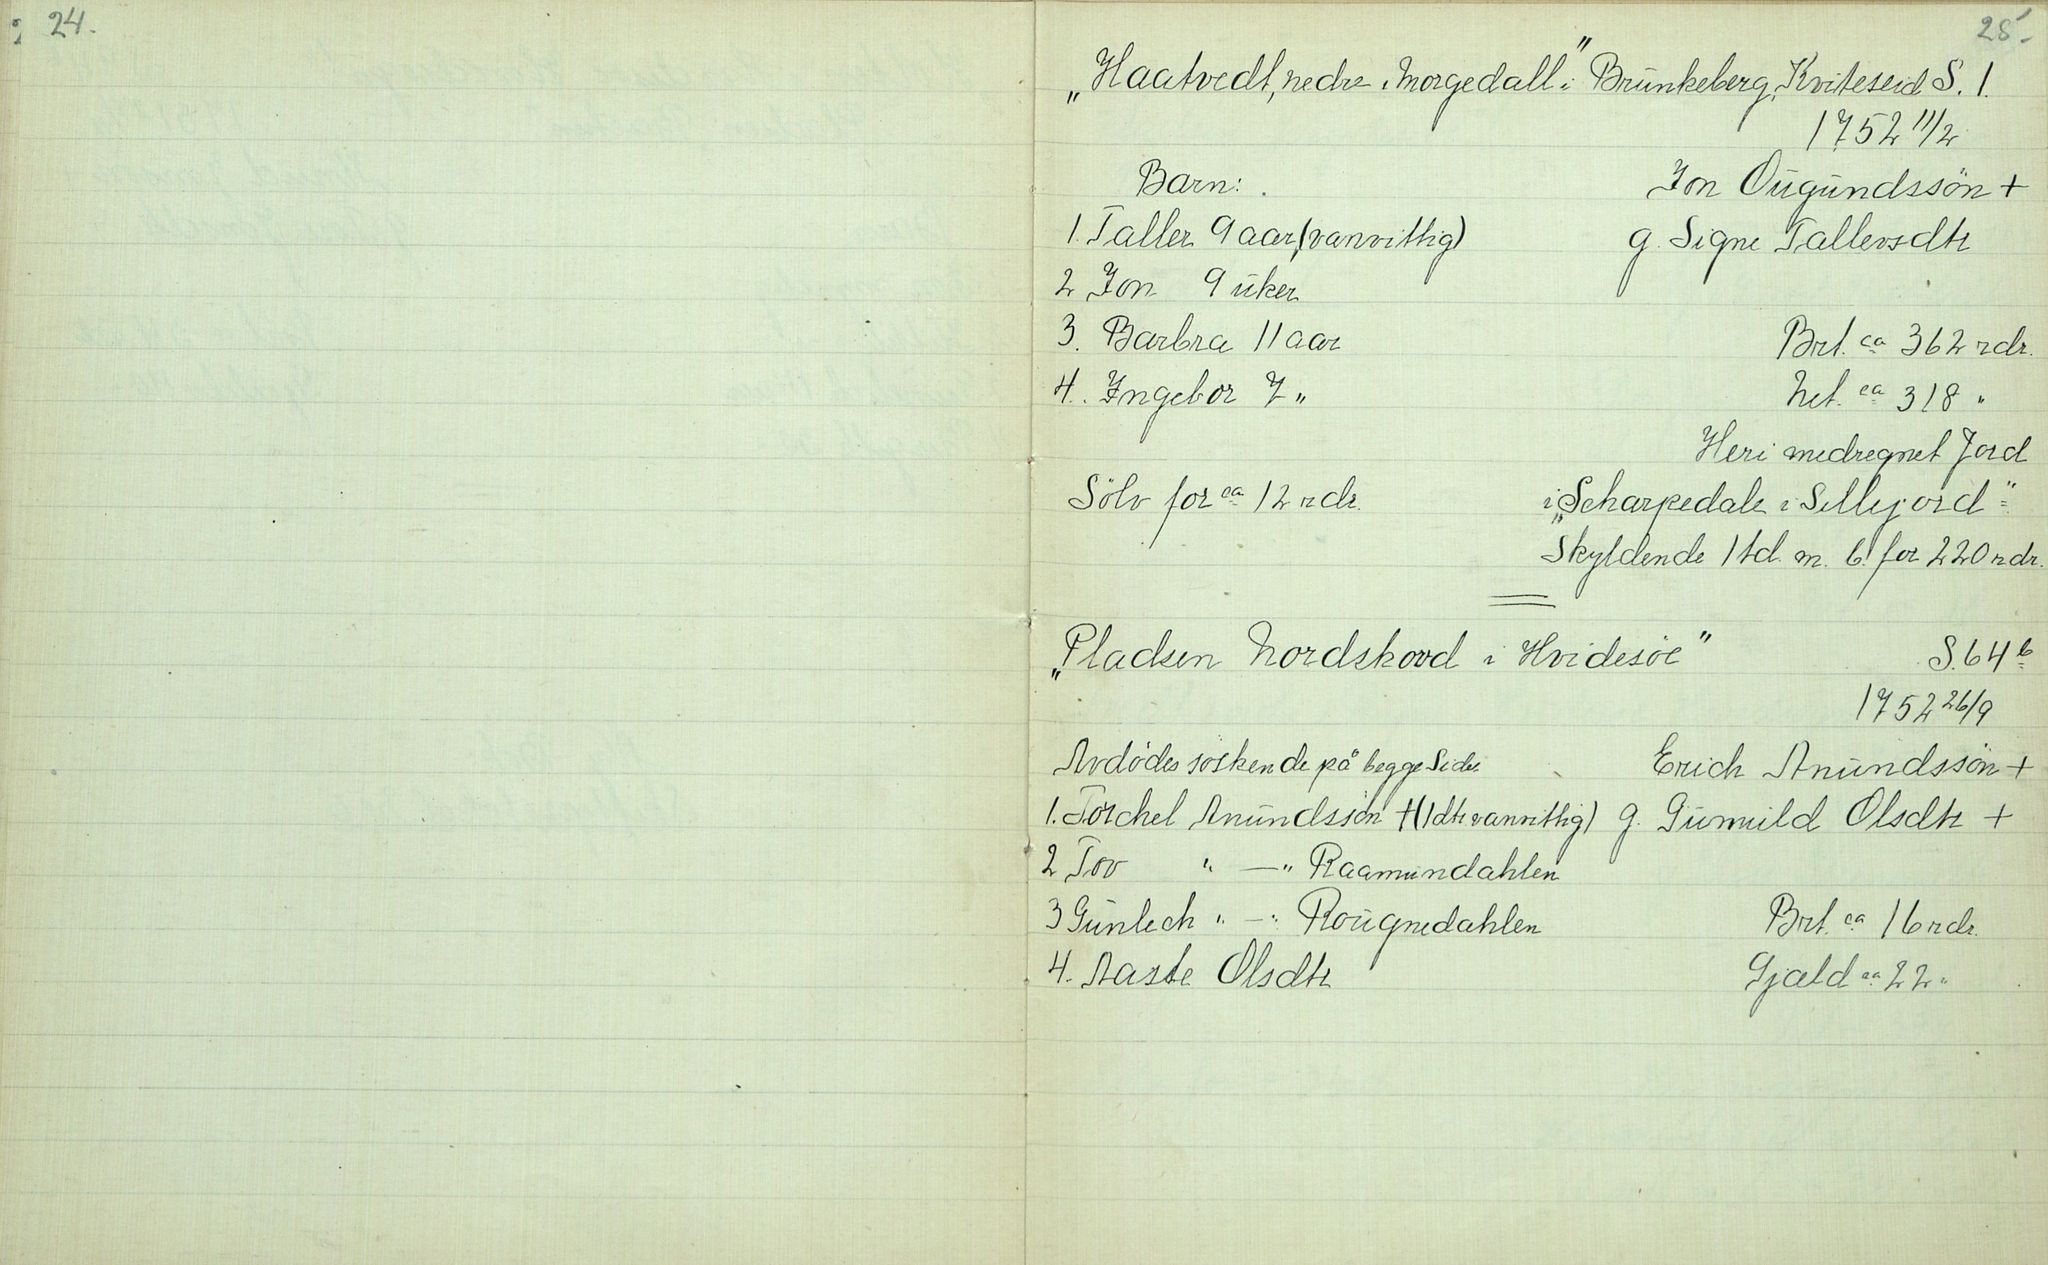 24.
25.
„Haatvedt, nedre i Morgedall" i Brunkeberg, Kviteseid S. 1.
1752 11/2
Barn: Jon Ougundssön +
1. Taller 9 aar, (vanvittig) g. Signe Tallevsdtr
2 Jon 9 uker
3. Barbra 11 aar Brt. ca 362 rdr.
4. Ingebor 7 „ Net. ca 318 "
Heri medregnet Jord
Sölv for ca 12 rdr. i „Scharpedale i Sillejord"
Skyldende 1 td. m. b. for 220 rdr.
„Pladsen Nordskovd i Hvidesöe" S. 64 b
1752 26/9
Avdödes söskende på begge Sider Erich Anundssön +
1. Torchel Anundssön + (1 dtr vanvittig) g. Gunnild Olsdtr +
2 Tov " —" Raamundahlen
3 Gunlech " —" Rougnedahlen Brt. ca 16 rdr.
4. Aaste Olsdtr Gjæld ca 22 "